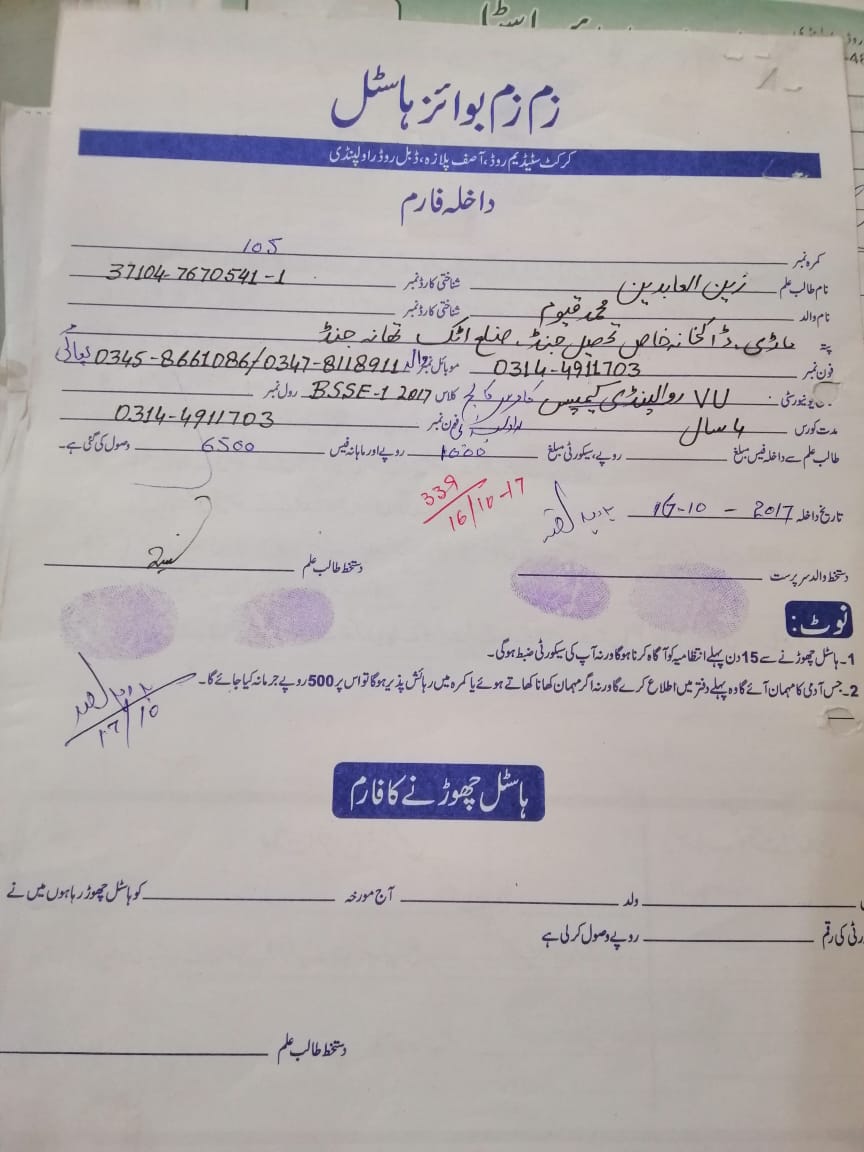 زم زم بوائز ہاسٹل
کرکٹ سٹیڈیم روڈ، آصف پلازہ، ڈبل روڈ راولپنڈی
داخلہ فارم
کمرہ نمبر 105
نام طالب علم زین العابدین شناختی کارڈ نمبر 37104-7670541-1
نام والد محمد قیوم شناختی کارڈ نمبر
پتہ ماڑی ڈاکخانہ خاص تحصیل جنڈ ضلع اٹک تھانہ جنڈ
فون نمبر 0314-4911703 موبائل نمبر والد 0345-8661086/0347-8118911 بھائی
یونیورسٹی VU راولپنڈی کیمپس کلاس BSSE-1 2017 رول نمبر
مدت کورس 4 سال فون نمبر 0314-4911703
طالب علم سے داخلہ فیس مبلغ روپے، سیکورٹی مبلغ 1000 روپے اور ماہانہ فیس 6500 وصول کی گئی ہے۔
339
16/10-17
تاریخ داخلہ 16-10-2017
دستخط والد سرپرست دستخط طالب علم
نوٹ:
1۔ ہاسٹل چھوڑنے سے 15 دن پہلے انتظامیہ کو آگاہ کرنا ہوگا ورنہ آپ کی سیکورٹی ضبط ہوگی۔
2۔ جس آدمی کا مہمان آئے گا وہ پہلے دفتر میں اطلاع کرے گا ورنہ اگر مہمان کھانا کھاتے ہوئے یا کمرہ میں رہائش پذیر ہوگا تو اس پر 500 روپے جرمانہ کیا جائے گا۔
17/10
ہاسٹل چھوڑنے کا فارم
ولد آج مورخہ کو ہاسٹل چھوڑ رہا ہوں میں نے
رٹی کی رقم روپے وصول کر لی ہے
دستخط طالب علم